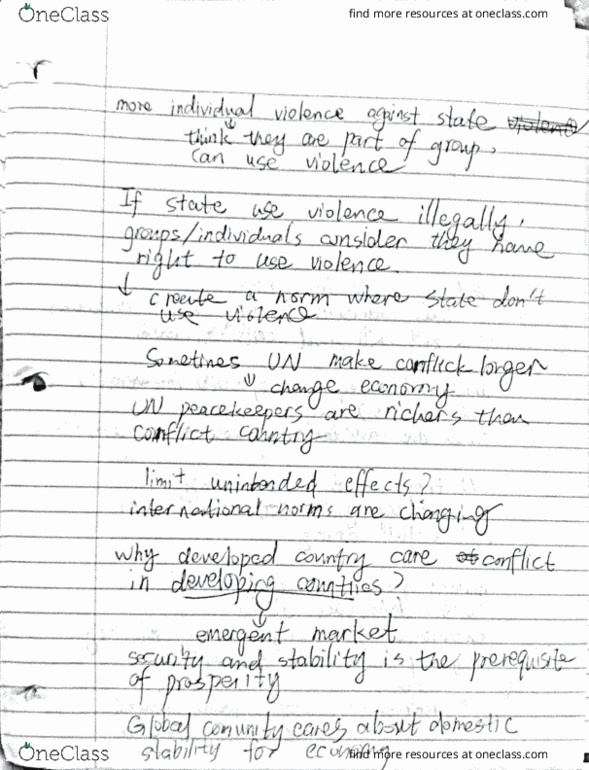 OneClass
find more resources at oneclass.com
more individual violence against state violence
think they are part of group,
can use violence
If state use violence illegally,
groups/individuals consider they have
right to use violence.
create a norm where state don't
use violence
Sometimes UN make conflick longer
change economy
UN peacekeepers are richers than
conflict country
limit unintended effects?
international norms are changing
why developed country care of conflict
in developing countries?
emergent market
security and stability is the prerequisite
of prosperity
Global comunity cares about domestic
stability for economy
OneClass
find more resources at oneclass.com